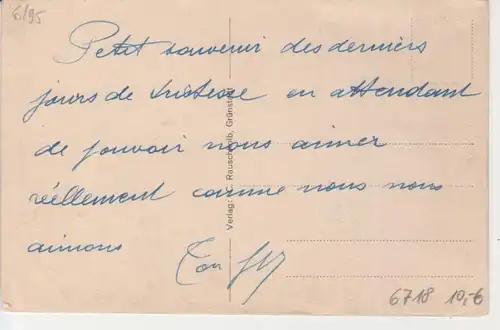 6/95
Petit souvenir des derniers
jours de tristesse en attendant
de pouvoir nous aimer
réellement comme nous nous
aimons
Ton
Verlag: C. Rauschkolb, Grünstadt
6718 10,-€